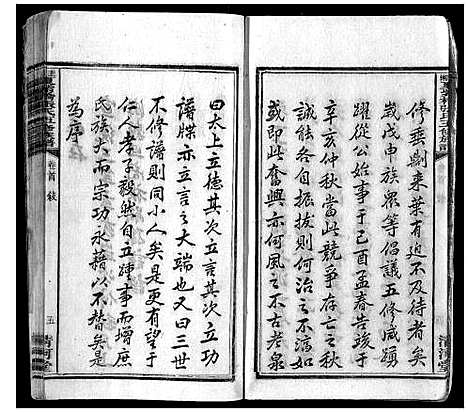 修垂劘来葉有迫不及待者矣
歲戊申族衆等倡議五修咸踴
躍從公始事于己酉孟春告竣于
辛亥仲秋當此競爭存亡之秋
誠能各自振拔則何治之不濤如
或即此奮興亦何風之不古老泉
曰太上立德其次立言其次立功
譜牒亦立言之大端也又曰三世
不修譜則同小人矣是更有望于
仁人孝子毅然自立踵事而增庶
民族大而宗功永藉以不替矣是
為序
卷首 敍
五
清河堂